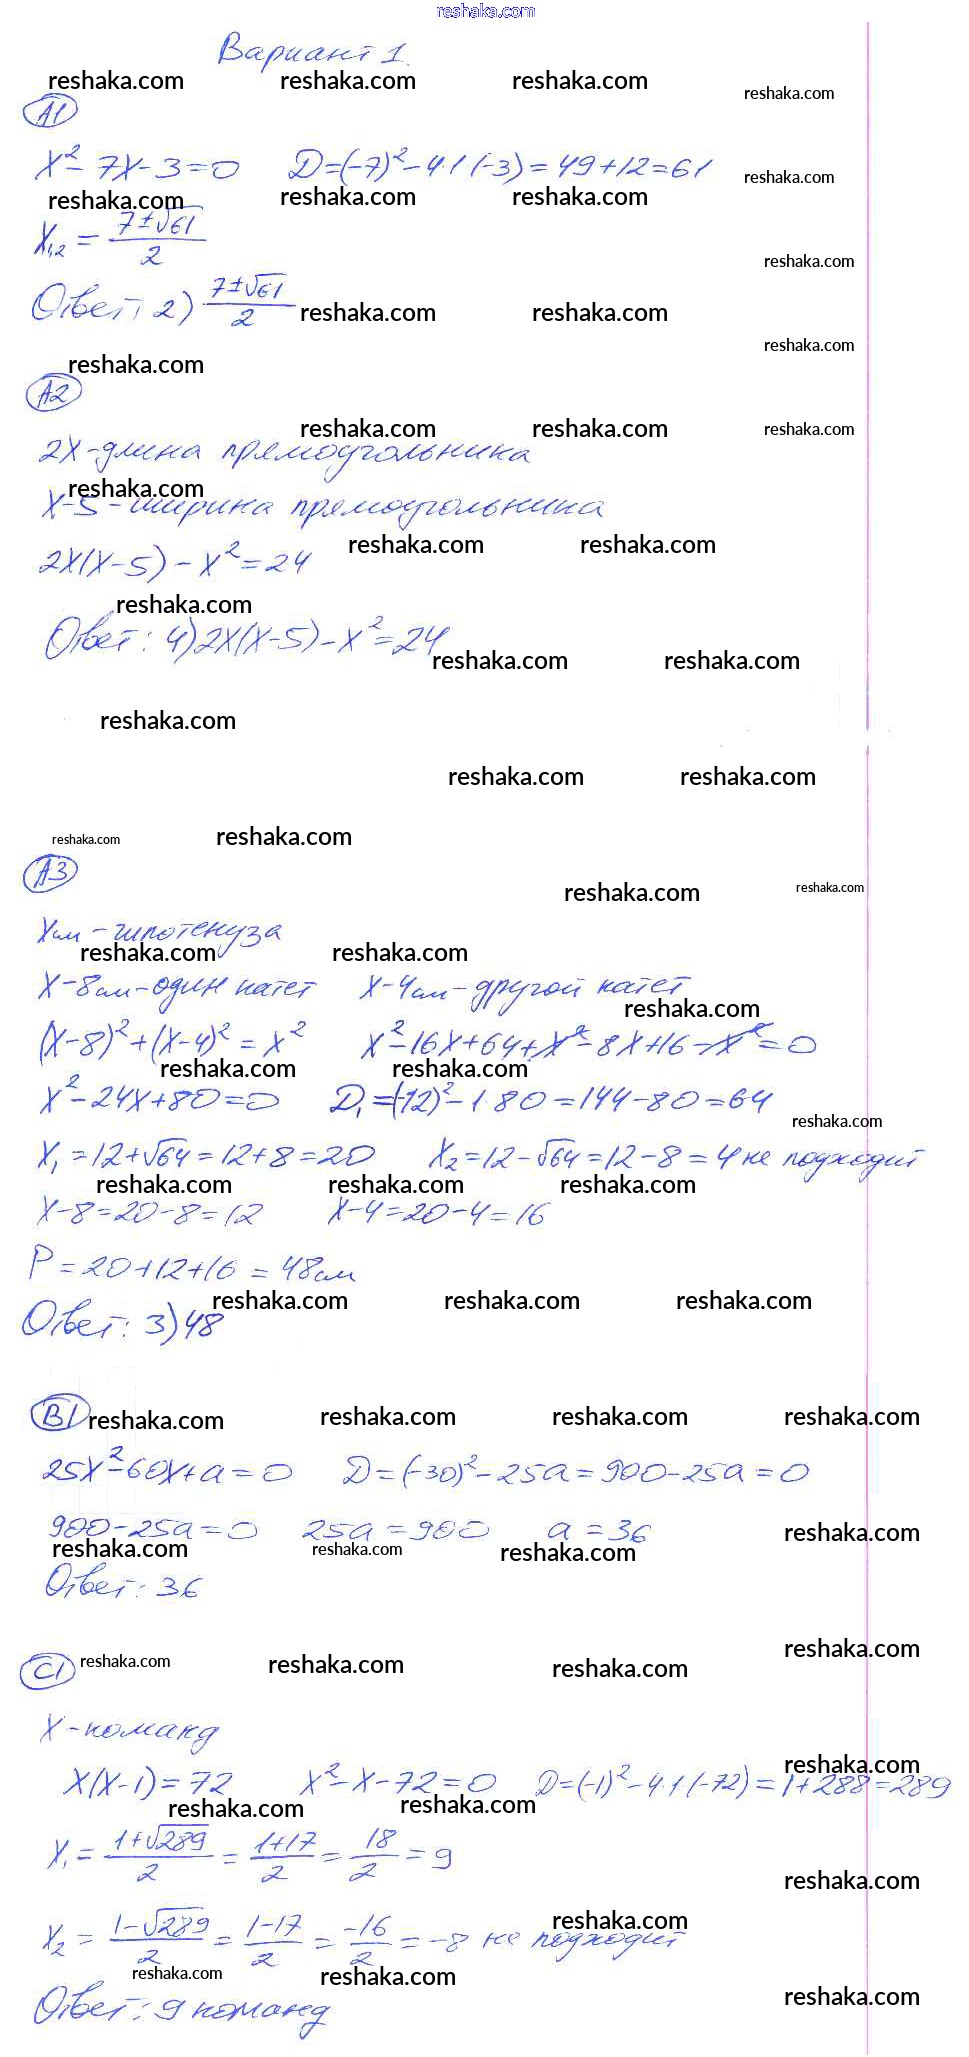 reshaka.com
Вариант 1.
reshaka.com reshaka.com reshaka.com reshaka.com
A1
x² - 7x - 3 = 0 D = (-7)² - 4·1·(-3) = 49 + 12 = 61 reshaka.com
reshaka.com reshaka.com reshaka.com
x₁,₂ = (7±√61)/2
reshaka.com
Ответ: 2) (7±√61)/2
reshaka.com reshaka.com
reshaka.com
reshaka.com
A2
reshaka.com reshaka.com reshaka.com
2x - длина прямоугольника
reshaka.com
x-5 - ширина прямоугольника
reshaka.com reshaka.com
2x(x-5) - x² = 24
reshaka.com
Ответ: 4) 2x(x-5) - x² = 24
reshaka.com reshaka.com
reshaka.com
reshaka.com reshaka.com
reshaka.com reshaka.com
A3
reshaka.com reshaka.com
x см - гипотенуза
reshaka.com reshaka.com
x-8 см - один катет x-4 см - другой катет
reshaka.com
(x-8)² + (x-4)² = x² x² - 16x + 64 + x² - 8x + 16 - x² = 0
reshaka.com reshaka.com
x² - 24x + 80 = 0 D₁ = (-12)² - 1·80 = 144 - 80 = 64
reshaka.com
x₁ = 12 + √64 = 12 + 8 = 20 x₂ = 12 - √64 = 12 - 8 = 4 не подходит
reshaka.com reshaka.com reshaka.com
x-8 = 20-8 = 12 x-4 = 20-4 = 16
P = 20 + 12 + 16 = 48 см
reshaka.com reshaka.com reshaka.com
Ответ: 3) 48
B1
reshaka.com reshaka.com reshaka.com reshaka.com
25x² - 60x + a = 0 D = (-30)² - 25a = 900 - 25a = 0
900 - 25a = 0 25a = 900 a = 36 reshaka.com
reshaka.com reshaka.com reshaka.com
Ответ: 36
reshaka.com
C1 reshaka.com reshaka.com reshaka.com
x - команд
reshaka.com
x(x-1) = 72 x² - x - 72 = 0 D = (-1)² - 4·1·(-72) = 1 + 288 = 289
reshaka.com reshaka.com
x₁ = (1+√289)/2 = (1+17)/2 = 18/2 = 9
reshaka.com
reshaka.com
x₂ = (1-√289)/2 = (1-17)/2 = -16/2 = -8 не подходит
reshaka.com reshaka.com
reshaka.com
Ответ: 9 команд